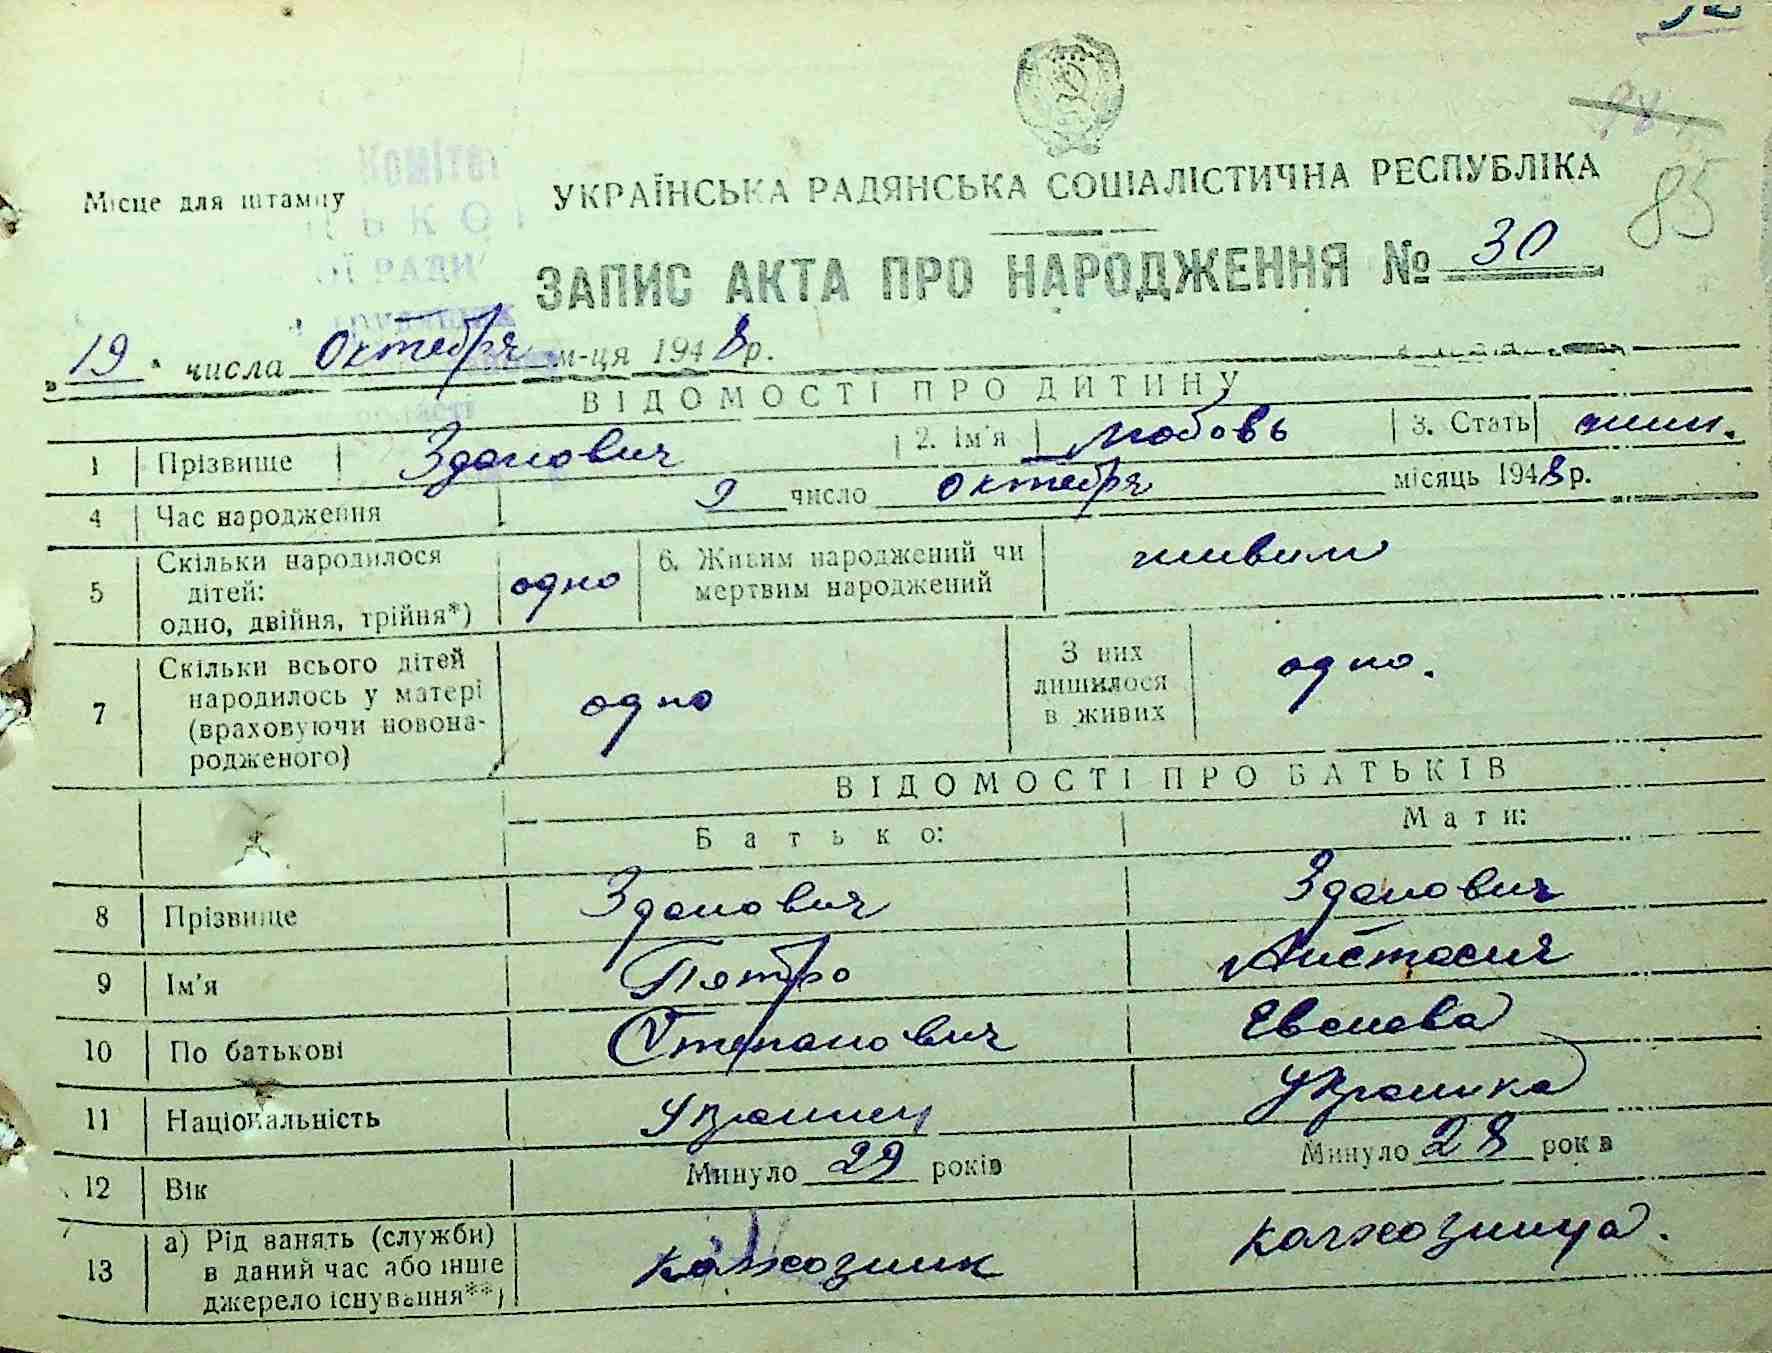 85
Місце для штампу
Коміте
УКРАЇНСЬКА РАДЯНСЬКА СОЦІАЛІСТИЧНА РЕСПУБЛІКА
ЗАПИС АКТА ПРО НАРОДЖЕННЯ № 30
РАДИ
„19“ числа Октебря м-ця 1948 р.
ВІДОМОСТІ ПРО ДИТИНУ
1 Прізвище Зданович 2. Ім'я Любовь 3. Стать жин.
4 Час народження 9 число Октебря місяць 1948 р.
5 Скільки народилося дітей: одно, двійня, трійня*) одно 6. Живим народжений чи мертвим народжений живим
7 Скільки всього дітей народилось у матері (враховуючи новонародженого) одно З них лишилося в живих одно.
ВІДОМОСТІ ПРО БАТЬКІВ
Батько: Мати:
8 Прізвище Зданович Зданович
9 Ім'я Пятро Анстасия
10 По батькові Степанович
11 Національність Украинец Украинка
12 Вік Минуло 29 років Минуло 28 років
13 а) Рід занять (служби) в даний час або інше джерело існування**) калхозник калхозница.